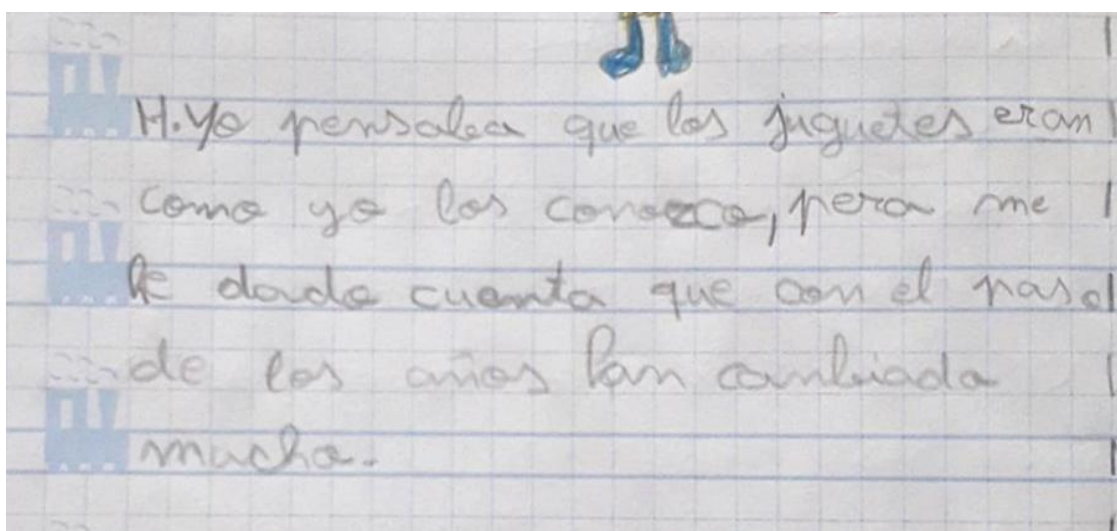 H. Yo pensaba que los juguetes eran
como yo los conozco, pero me
he dado cuenta que con el paso
de los años han cambiado
mucho.